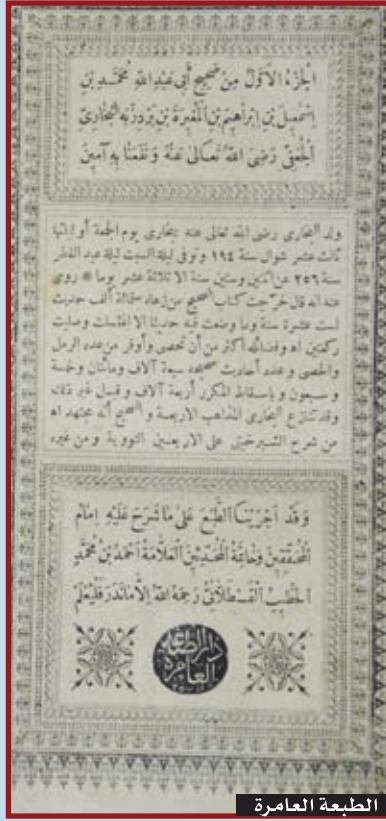 الجزء الأول من صحيح أبي عبد الله محمد بن
إسمعيل بن إبراهيم بن المغيرة بن بردزبه البخاري
الجعفي رضى الله تعالى عنه ونفعنا به آمين
ولد البخارى رضى الله تعالى عنه ببخارى يوم الجمعة أو ليلتها
ثالث عشر شوال سنة ١٩٤ وتوفى ليلة السبت ليلة عيد الفطر
سنة ٢٥٦ عن اثنين وستين سنة الا ثلاثة عشر يوما * روى
عنه انه قال خرّجت كتاب الصحيح من زهاء ستمائة ألف حديث
لست عشرة سنة وما وضعت فيه حديثا الا اغتسلت وصليت
ركعتين اه وفضائله اكثر من أن تحصى وأوفر من عدد الرمل
والحصى وعدد أحاديث صحيحه سبعة آلاف ومائتان وخمسة
وسبعون وباسقاط المكرر أربعة آلاف وقيل غير ذلك
وقد تنازع البخارى المذاهب الاربعة والصحيح أنه مجتهد اه
من شرح الشبرخيتى على الاربعين النووية ومن غيره
وقد أجرينا الطبع على ما شرح عليه امام
المحققين وخاتمة المحدثين العلامة أحمد بن محمد
الخطيب القسطلاني رحمه الله إلا ما ندر فليعلم
دار الطباعة
العامرة
الطبعة العامرة